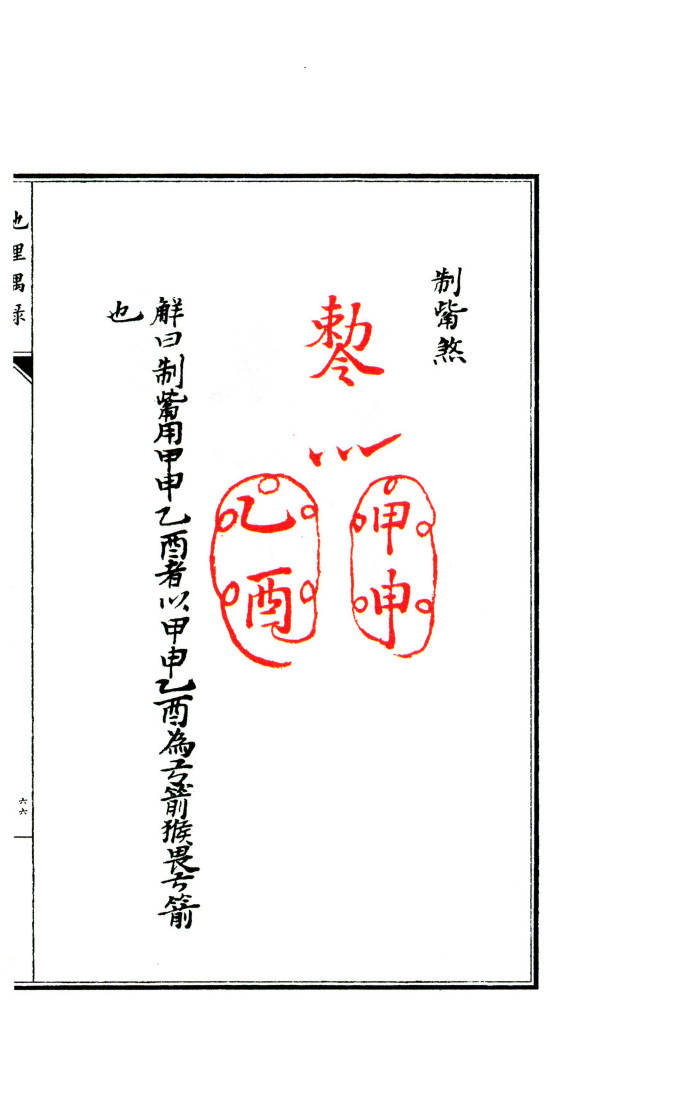 制觜煞
敕令
甲申
乙酉
解曰制觜用甲申乙酉者以甲申乙酉為弓箭猴畏弓箭
也
地理偶録
六六